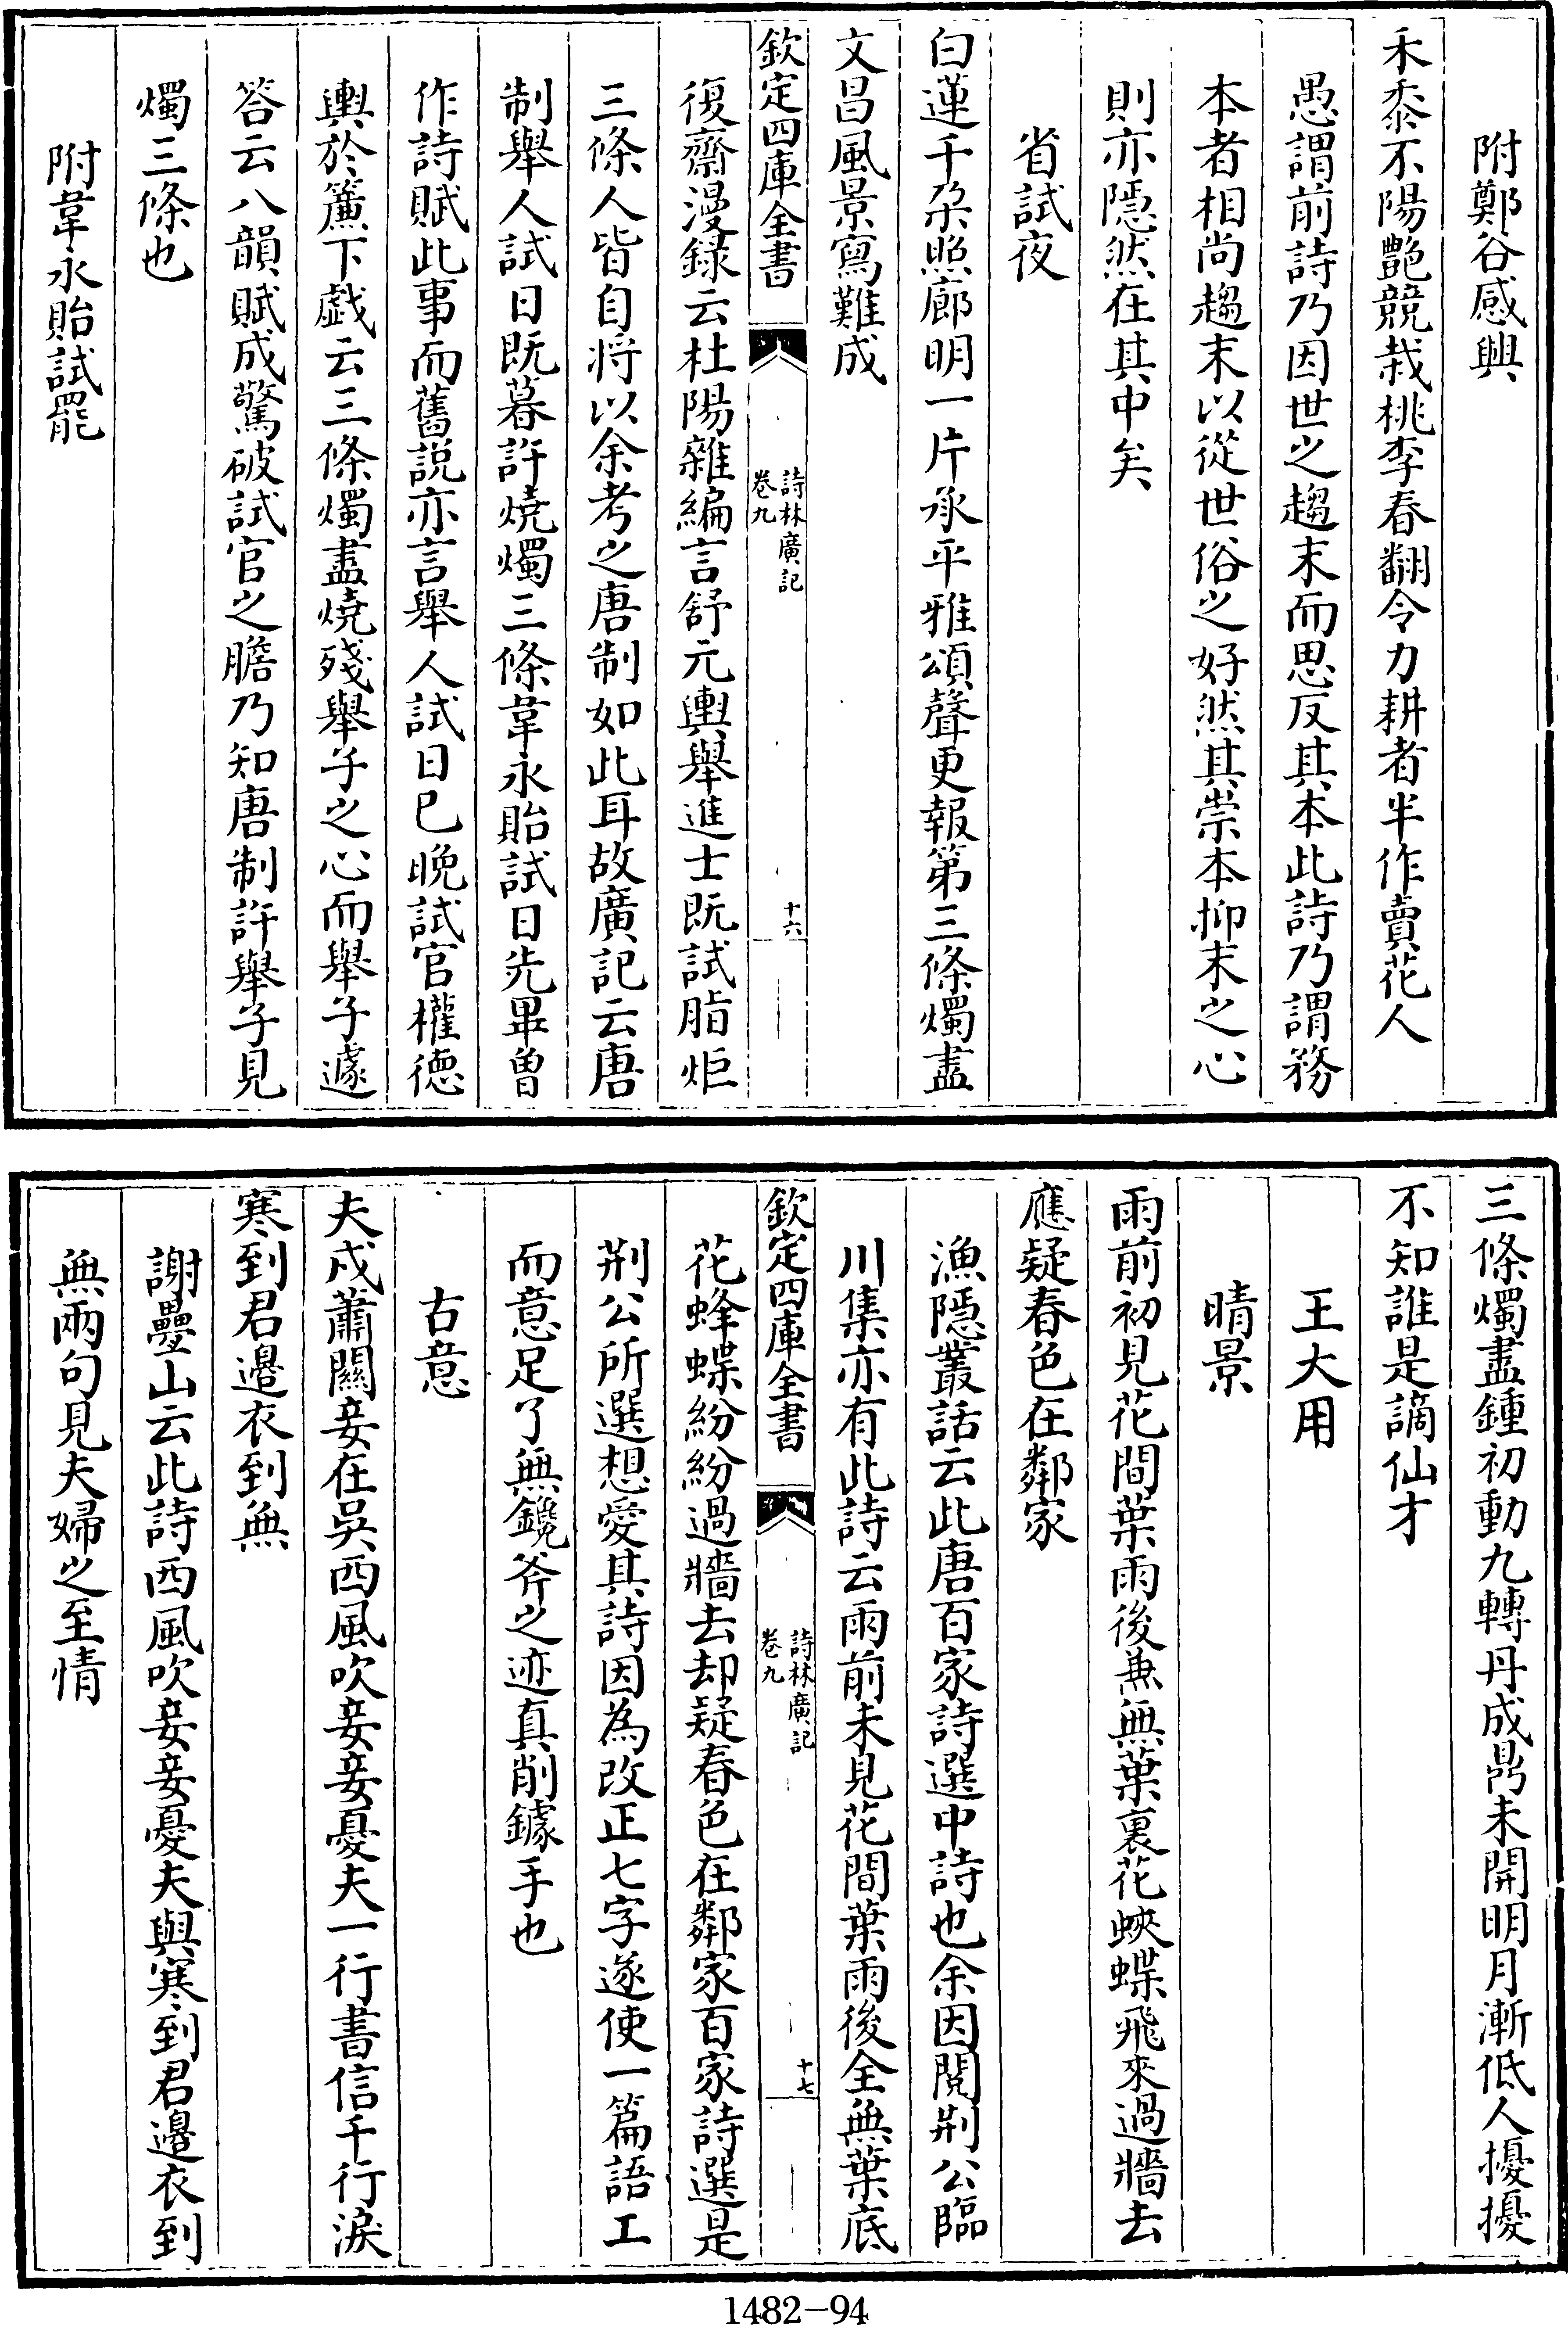 附鄭谷感興
禾黍不陽艷競栽桃李春翻令力耕者半作賣花人
愚謂前詩乃因世之趨末而思反其本此詩乃謂務
本者相尚趨末以從世俗之好然其崇本抑末之心
則亦隱然在其中矣
省試夜
白蓮千朶照廊明一片承平雅頌聲更報第三條燭盡
文昌風景寫難成
欽定四庫全書
詩林廣記
卷九
十六
復齋漫録云杜陽雜編言舒元輿舉進士既試脂炬
三條人皆自将以余考之唐制如此耳故廣記云唐
制舉人試日既暮許燒燭三條韋永貽試日先畢曽
作詩賦此事而舊説亦言舉人試日已晚試官權徳
輿於簾下戯云三條燭盡燒殘舉子之心而舉子遽
答云八韻賦成驚破試官之膽乃知唐制許舉子見
燭三條也
附韋永貽試罷
三條燭盡鍾初動九轉丹成鼎未開明月漸低人擾擾
不知誰是謫仙才
王大用
晴景
雨前初見花間葉雨後兼無葉裏花蛺蝶飛來過牆去
應疑春色在鄰家
漁隱叢話云此唐百家詩選中詩也余因閱荆公臨
川集亦有此詩云雨前未見花間葉雨後全無葉底
欽定四庫全書
詩林廣記
卷九
十七
花蜂蝶紛紛過牆去却疑春色在鄰家百家詩選是
荆公所選想愛其詩因為改正七字遂使一篇語工
而意足了無鑱斧之迹真削鐻手也
古意
夫戍蕭關妾在吳西風吹妾妾憂夫一行書信千行淚
寒到君邉衣到無
謝疊山云此詩西風吹妾妾憂夫與寒到君邉衣到
無兩句見夫婦之至情
1482-94